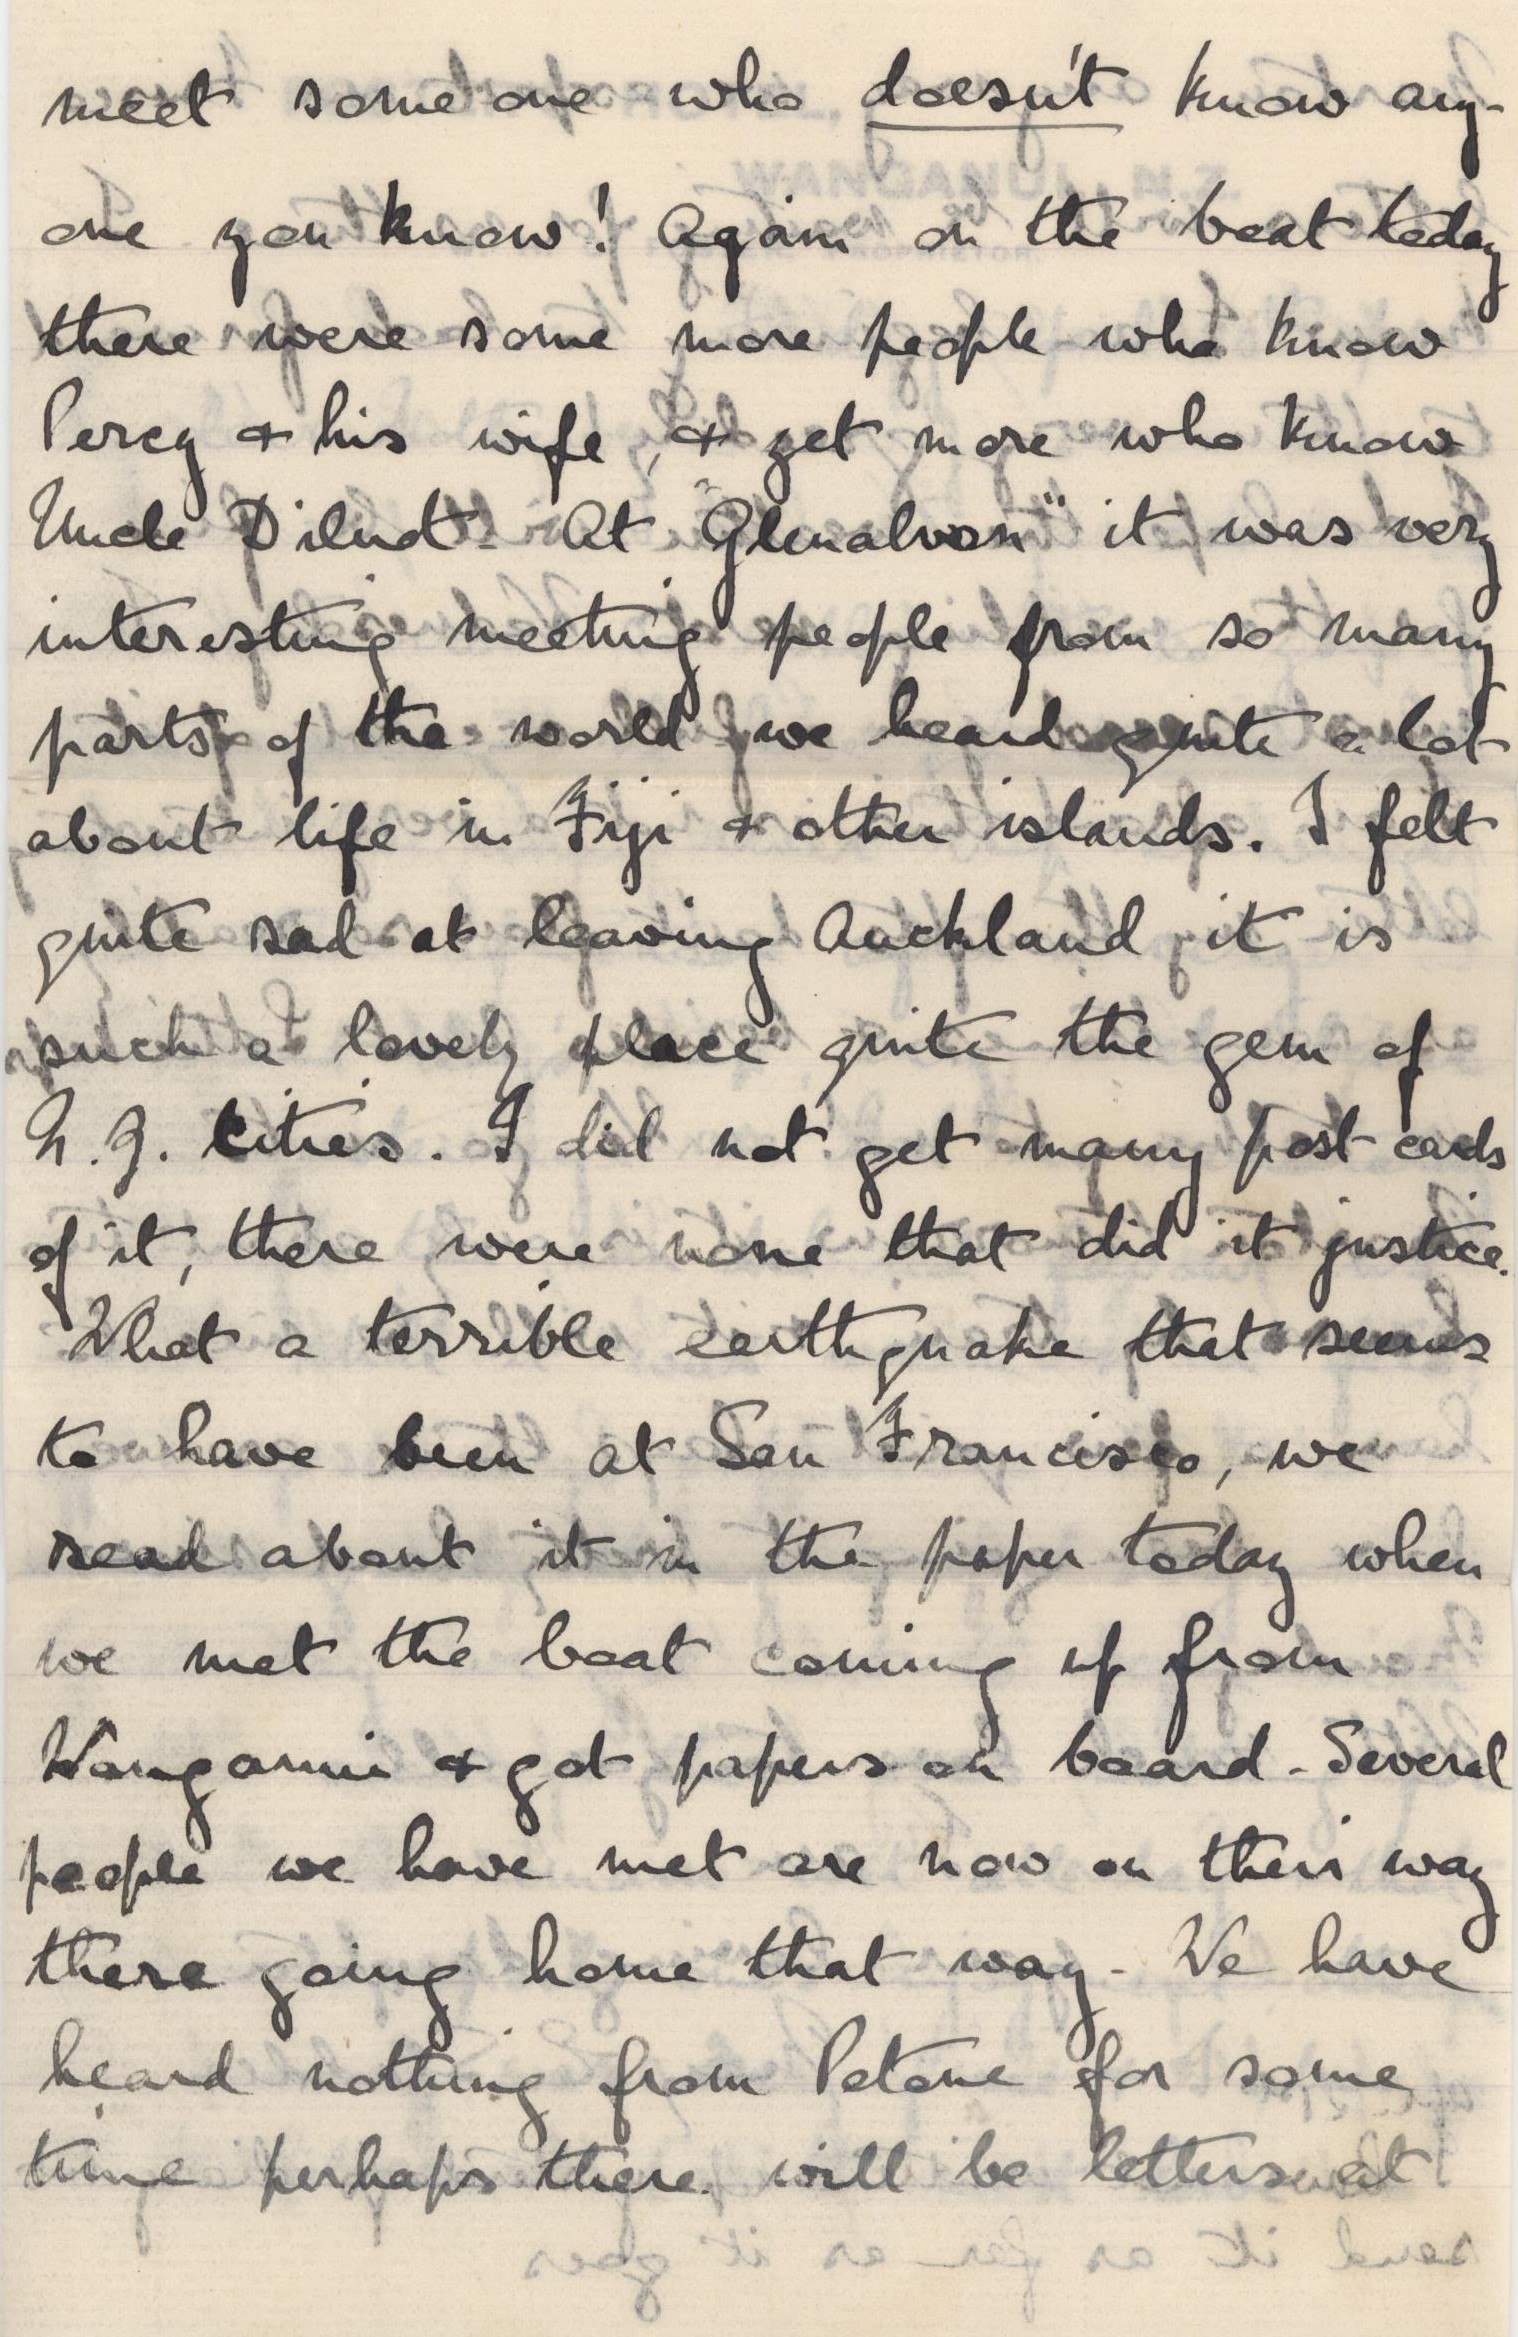 meet some one who doesn't know any-
one you know! Again on the boat today
there were some more people who know
Percy & his wife, & yet more who know
Uncle Dilnot. At "Glenalvon" it was very
interesting meeting people from so many
parts of the world we heard quite a lot
about life in Fiji & other islands. I felt
quite sad at leaving Auckland, it is
such a lovely place quite the gem of
N.Z. cities. I did not get many post cards
of it, there were none that did it justice.
What a terrible earthquake that seems
to have been at San Francisco, we
read about it in the paper today when
we met the boat coming up from
Wanganui & got papers on board. Several
people we have met are now on their way
there going home that way. We have
heard nothing from Petone for some
time perhaps there will be letters at